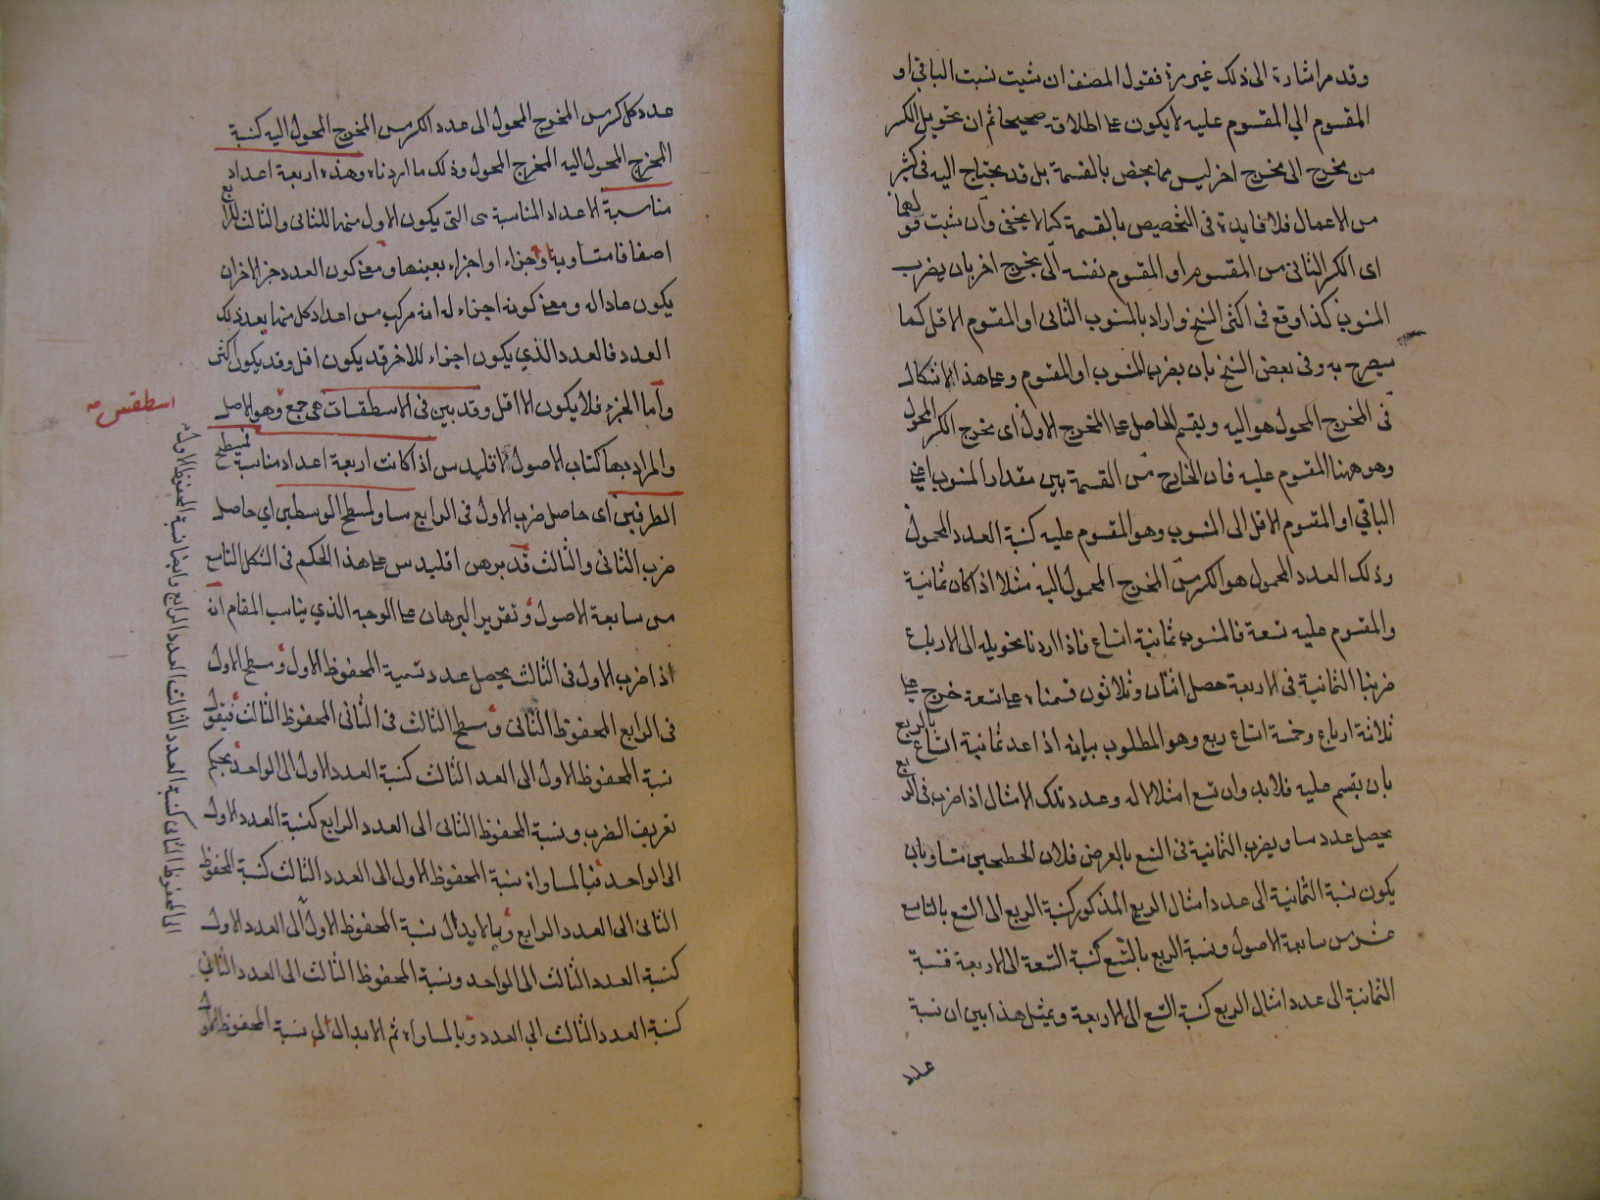 وقد مر اشارة الى ذلك غير مرة فقول المصنف ان شيت نسبت الباقى او
المقسوم الي المقسوم عليه لا يكون على اطلاقه صحيحا ثم ان تحويل الكسر
من مخرج الى مخرج اخر ليس مما يختص بالقسمة بل قد يحتاج اليه فى كثير
من الاعمال فلا فايدة فى التخصيص بالقسمة كما لا يخفى وان شيت
اى الكسر الثانى من المقسوم او المقسوم نفسه الى مخرج اخر بان يضرب
المنسوب كذا وقع فى اكثر النسخ واراد بالمنسوب الثانى او المقسوم الاقل كما
سيصرح به وفى بعض النسخ بان يضرب المنسوب او المقسوم وعلى هذا لا اشكال
فى المخرج المحول هو اليه ويقسم الحاصل على المخرج الاول اى مخرج الكسر المحول
وهو ههنا المقسوم عليه فان الخارج من القسمة يبين مقدار المنسوب اعني
الباقي او المقسوم الاقل الى المنسوب وهو المقسوم عليه كنسبة العدد المحمول
وذلك العدد المحمول هو الكسر من المخرج المحمول اليه مثلا اذا كان ثمانية
والمقسوم عليه تسعة فالمنسوب ثمانية اتساع فاذا اردنا تحويله الى الارباع
ضربنا الثمانية فى الاربعة حصل اثنان وثلاثون قسمناه على تسعة خرج
ثلاثة ارباع وخمسة اتساع ربع وهو المطلوب بيانه اذا عد ثمانية اتساع بالربع
بان يقسم عليه فلابد وان تسع امثالا له وعدد تلك الامثال اذا ضرب فى الربع
يحصل عدد مساو بضرب الثمانية فى التسع بالعرض فلان المسطحين متساويان
يكون نسبة الثمانية الى عدد امثال الربع المذكور كنسبة الربع الى التسع بالتاسع
عشر من سابعة الاصول ونسبة الربع بالتسع كنسبة التسعة الى الاربعة فنسبة
الثمانية الى عدد امثال الربع كنسبة التسع الى الاربعة وبمثل هذا يبين ان نسبة
عدد
عدد كل كسر من المخرج المحول الى عدد الكسر من المخرج المحول اليه كنسبة
المخرج المحول اليه المخرج المحول وذلك ما اردناه وهذه اربعة اعداد
متناسبة الاعداد المتناسبة هى التى يكون الاول منها للثانى والثالث للرابع
اضعافا متساوية او جزء او اجزاء بعينها ومعنى كون العدد جزء الاخر ان
يكون عادا له ومعنى كونه اجزاء له انه مركب من اعداد كل منها يعد ذلك
العدد فالعدد الذي يكون اجزاء للاخر قد يكون اقل وقد يكون اكثر
واما الجزء فلا يكون الا اقل وقد بين فى الاسطقسات هى جمع وهو الاصل
اسطقس
والمراد بها كتاب الاصول لاقليدس اذا كانت اربعة اعداد متناسبة فمسطح
الطرفين اى حاصل ضرب الاول فى الرابع مساو لمسطح الوسطين اي حاصل
ضرب الثانى والثالث قد برهن اقليدس على هذا الحكم فى الشكل التاسع
من سابعة الاصول وتقرير البرهان على الوجه الذي يناسب المقام انه
اذا ضرب الاول فى الثالث يحصل عدد تسمية المحفوظ الاول ومسطح الاول
فى الرابع المحفوظ الثانى ومسطح الثالث فى الثانى المحفوظ الثالث فنقول
نسبة المحفوظ الاول الى العدد الثالث كنسبة العدد الاول الى الواحد بحكم
تعريف الضرب ونسبة المحفوظ الثانى الى العدد الرابع كنسبة العدد الاول
الى الواحد فبالمساواة نسبة المحفوظ الاول الى العدد الثالث كنسبة المحفوظ
الثانى الى العدد الرابع وبالابدال نسبة المحفوظ الاول الى العدد الاول
كنسبة العدد الثالث الى الواحد ونسبة المحفوظ الثالث الى العدد الثانى
كنسبة العدد الثالث الي العدد وبالمساواة ثم الابدال الى نسبة المحفوظ الاول
الى المحفوظ الثانى كنسبة العدد الثالث العدد الرابع وايضا نسبة المحفوظ الاول